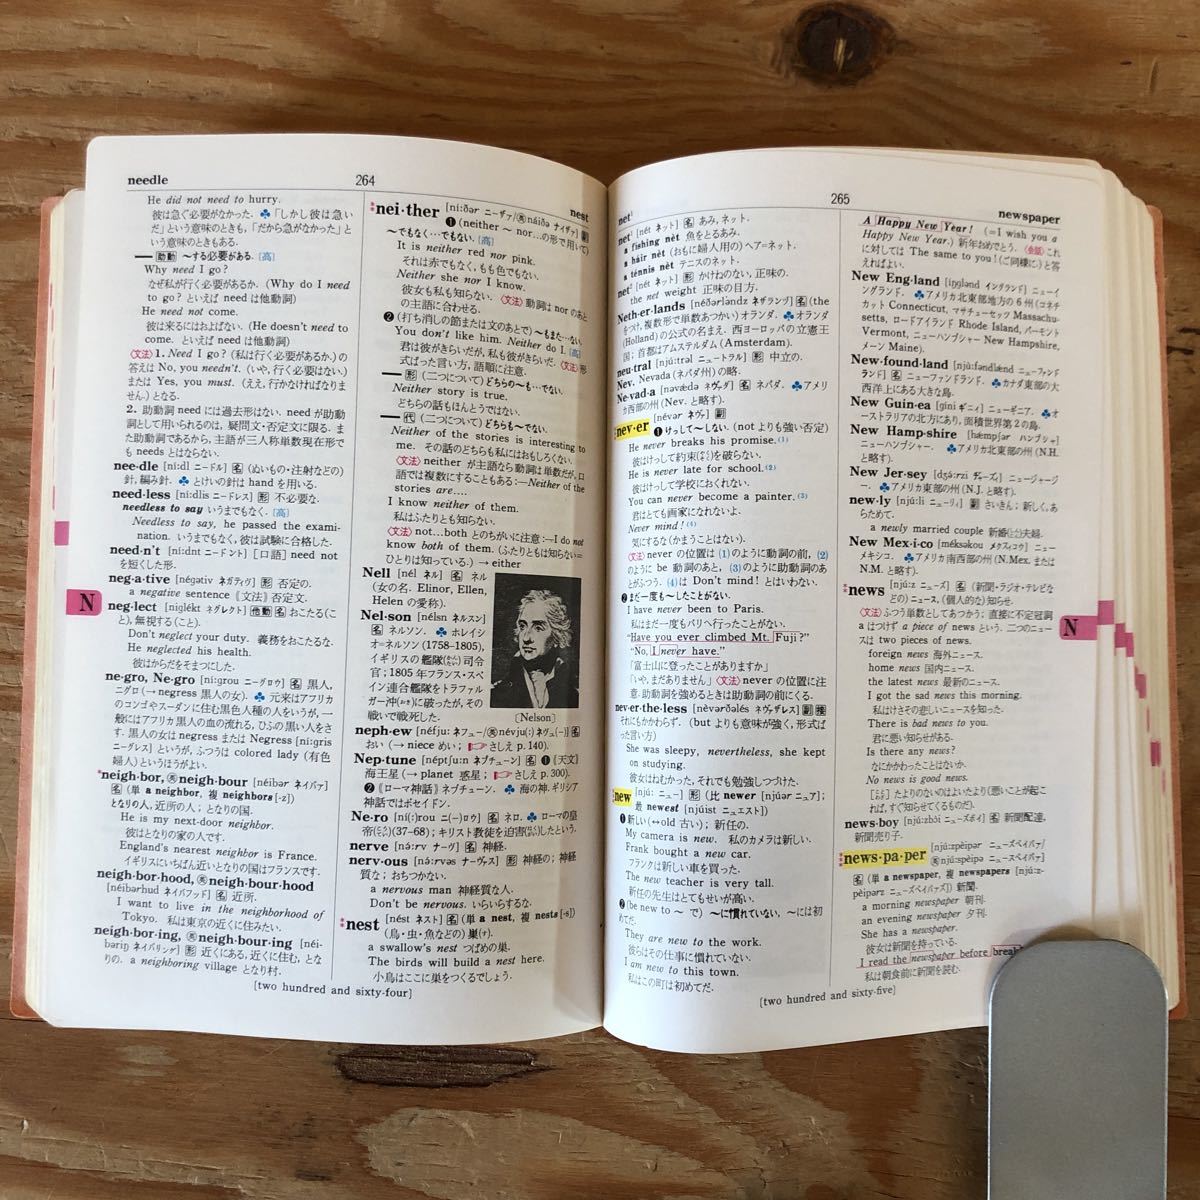 needle
264
nest
He did not need to hurry.
彼は急ぐ必要がなかった. ♣「しかし彼は急い
だ」という意味のときも,「だから急がなかった」と
いう意味のときもある.
—[助動] 〜する必要がある. [高]
Why need I go?
なぜ私が行く必要があるか. (Why do I need
to go? といえば need は他動詞)
He need not come.
彼は来るにはおよばない. (He doesn't need to
come. といえば need は他動詞)
《文法》1. Need I go? (私は行く必要があるか.) の
答えは No, you needn't. (いや, 行く必要はない.)
または Yes, you must. (ええ, 行かなければなりま
せん.) となる.
2. 助動詞 need には過去形はない. need が助動
詞として用いられるのは, 疑問文・否定文に限る. ま
た助動詞であるから, 主語が三人称単数現在形で
も needs とはならない.
nee·dle [níːdl ニードル] [名] (ぬいもの・注射などの)
針, 編み針. ♣とけいの針は hand を用いる.
need·less [níːdlis ニードレス] [形] 不必要な.
needless to say いうまでもなく. [高]
Needless to say, he passed the exami-
nation. いうまでもなく, 彼は試験に合格した.
need·n't [níːdnt ニードント] [口語] need not
を短くした形.
neg·a·tive [négətiv ネガティヴ] [形] 否定の.
a negative sentence 《文法》否定文.
N
neg·lect [niglékt ネグレクト] [他動] [名] おこたる(こ
と), 無視する(こと).
Don't neglect your duty. 義務をおこたるな.
He neglected his health.
彼はからだをそまつにした.
ne·gro, Ne·gro [níːgrou ニーグロウ] [名] 黒人,
ニグロ (→ negress 黒人の女). ♣ 元来はアフリカ
のコンゴやスーダンに住む黒色人種の人をいうが, 一
般にはアフリカ黒人の血の流れる, ひふの黒い人をさ
す. 黒人の女は negress または Negress [níːgris
ニーグレス] というが, ふつうは colored lady (有色
婦人) というほうがよい.
*neigh·bor, [英]neigh·bour [néibər ネイバァ]
[名] (単 a neighbor, 複 neighbors [-z])
となりの人, 近所の人; となりの国.
He is my next-door neighbor.
彼はとなりの家の人です.
England's nearest neighbor is France.
イギリスにいちばん近いとなりの国はフランスです.
neigh·bor·hood, [英]neigh·bour·hood
[néibərhud ネイバフッド] [名] 近所.
I want to live in the neighborhood of
Tokyo. 私は東京の近くに住みたい.
neigh·bor·ing, [英]neigh·bour·ing [néi-
bəriŋ ネイバリング] [形] 近くにある, 近くに住む, とな
りの. a neighboring village となり村.
nei·ther [níːðər ニーザァ/[英] náiðə ナイザァ] [副]
❶ (neither 〜 nor …の形で用いて)
〜でもなく…でもない. [高]
It is neither red nor pink.
それは赤でもなく, ももも色でもない.
Neither she nor I know.
彼女も私も知らない. 《文法》動詞は nor のあと
の主語に合わせる.
❷ (打ち消しの節または文のあとで) 〜もまた…ない.
You don't like him. Neither do I. [高]
君は彼がきらいだが, 私も彼がきらいだ. 《文法》形
式ばった言い方, 語順に注意.
—[形] (二つについて) どちらの〜も…でない.
Neither story is true.
どちらの話もほんとうではない.
—[代] (二つについて) どちらも〜でない.
Neither of the stories is interesting to
me. その話のどちらも私にはおもしろくない.
《文法》neither が主語なら動詞は単数だが, 口
語では複数にすることもある: —Neither of the
stories are….
I know neither of them.
私はふたりとも知らない.
《文法》not…both とのちがいに注意: —I do not
know both of them. (ふたりとも知らない=
ひとりは知っている.) → either
Nell [nél ネル] [名] ネル
(女の名. Elinor, Ellen,
Helen の愛称).
Nel·son [nélsn ネルスン]
[名] ネルソン. ♣ ホレイシ
オ=ネルソン (1758-1805),
イギリスの艦隊司令
官; 1805 年フランス・スペ
イン連合艦隊をトラファル
ガー沖に破ったが, その
戦いで戦死した.
[Nelson]
neph·ew [néfjuː ネフュー/[英] névju(ː) ネヴュ(ー)] [名]
おい (→ niece めい; ☞ さしえ p. 140).
Nep·tune [néptjuːn ネプチューン] [名] ❶ 《天文》
海王星 (→ planet 惑星; ☞さしえ p.300).
❷ 《ローマ神話》ネプチューン. ♣ 海の神. ギリシア
神話ではポセイドン.
Ne·ro [ní(ː)rou ニ(ー)ロウ] [名] ネロ. ♣ローマの皇
帝 (37-68); キリスト教徒を迫害したという.
nerve [nəːrv ナーヴ] [名] 神経.
nerv·ous [nəːrvəs ナーヴァス] [形] 神経の; 神経
質な; おちつかない.
a nervous man 神経質な人.
Don't be nervous. いらいらするな.
nest [nést ネスト] [名] (単 a nest, 複 nests [-s])
(鳥・虫・魚などの) 巣.
a swallow's nest つばめの巣.
The birds will build a nest here.
小鳥はここに巣をつくるでしょう.
[two hundred and sixty-four]
net¹
265
newspaper
net¹ [nét ネット] [名] あみ, ネット.
a fishing nèt 魚をとるあみ.
a háir nèt (おもに婦人用の) ヘア=ネット.
a ténnis nèt テニスのネット.
net² [nét ネット] [形] かけねのない, 正味の.
the net weight 正味の目方.
Neth·er·lands [néðərləndz ネザランヅ] [名] (the
をつけ, 複数形で単数あつかい) オランダ. ♣ オランダ
(Holland) の公式の名まえ. 西ヨーロッパの立憲王
国; 首都はアムステルダム (Amsterdam).
neu·tral [njúːtrəl ニュートラル] [形] 中立の.
Nev. Nevada (ネバダ州) の略.
Ne·vad·a [nəvædə ネヴァダ] [名] ネバダ. ♣アメリ
カ西部の州 (Nev. と略す).
nev·er [névər ネヴァ] [副]
❶けっして〜しない. (not よりも強い否定)
He never breaks his promise.(1)
彼はけっして約束を破らない.
He is never late for school.(2)
彼はけっして学校におくれない.
You can never become a painter.(3)
君はとても画家になれないよ.
Never mind!(4)
気にするな (かまうことはない).
《文法》never の位置は (1)のように動詞の前, (2)
のように be 動詞のあと, (3)のように助動詞のあ
とがふつう. (4)は Don't mind! とはいわない.
❷まだ一度も〜したことがない.
I have never been to Paris.
私はまだ一度もパリへ行ったことがない.
“Have you ever climbed Mt. Fuji?”
“No, I never have.”
「富士山に登ったことがありますか」
「いや, まだありません」《文法》never の位置に注
意. 助動詞を強めるときは助動詞の前にくる.
nev·er·the·less [nèvərðəlés ネヴァザレス] [副] [接]
それにもかかわらず. (but よりも意味が強く, 形式ば
った言い方)
She was sleepy, nevertheless, she kept
on studying.
彼女はねむかった, それでも勉強しつづけた.
new [njúː ニュー] [形] (比 newer [njúər ニュア];
最 newest [njúist ニュエスト])
❶新しい (↔old 古い); 新任の.
My camera is new. 私のカメラは新しい.
Frank bought a new car.
フランクは新しい車を買った.
The new teacher is very tall.
新任の先生はとてもせいが高い.
❷(be new to 〜 で) 〜に慣れていない, 〜には初
めてだ.
They are new to the work.
彼らはその仕事に慣れていない.
I am new to this town.
私はこの町は初めてだ.
A Happy New Year! (=I wish you a
Happy New Year.) 新年おめでとう. 《会話》これ
に対しては The same to you! (ご同様に) と答え
ればよい.
New Eng·land [íŋglənd イングランド] ニューイ
ングランド. ♣アメリカ北東部地方の6州 (コネチ
カット Connecticut, マサチューセッツ Massachu-
setts, ロードアイランド Rhode Island, バーモント
Vermont, ニューハンプシャー New Hampshire,
メーン Maine).
New·found·land [njùːfəndlænd ニューファンド
ランド] [名] ニューファンドランド. ♣カナダ東部の大
西洋上にある大きな島.
New Guin·ea [gíni ギニィ] ニューギニア. ♣オ
ーストラリアの北方にあり, 面積世界第2の島.
New Hamp·shire [hæmpʃər ハンプシャ]
ニューハンプシャー. ♣アメリカ北東部の州 (N.H.
と略す).
New Jer·sey [dʒə́ːrzi ヂャーズィ] ニュージャージ
ー. ♣アメリカ東部の州 (N.J. と略す).
new·ly [njúːli ニューリィ] [副] さいきん; 新しく, あ
らためて.
a newly married couple 新婚夫婦.
New Mex·i·co [méksəkou メクスィコウ] ニュー
メキシコ. ♣アメリカ南西部の州 (N.Mex. または
N.M. と略す).
news [njúːz ニューズ] [名] (新聞・ラジオ・テレビな
どの) ニュース, (個人的な) 知らせ.
《文法》ふつう単数としてあつかう; 直接に不定冠詞
a はつけず a piece of news という. 二つのニュー
スは two pieces of news.
foreign news 海外ニュース.
home news 国内ニュース.
the latest news 最新のニュース.
I got the sad news this morning.
私はけさその悲しいニュースを知った.
There is bad news to you.
君に悪い知らせがある.
Is there any news?
なにかかわったことはないか.
No news is good news.
[ことわざ] たよりのないのはよいたより (悪いことが起こ
れば, すぐ知らせてくるものだ).
news·boy [njúːzbòi ニューズボイ] [名] 新聞配達,
新聞売り子.
news·pa·per [njúːzpèipər ニューズペイパァ/
[英] njúːspèipə ニュースペイパァ]
[名] (単 a newspaper, 複 newspapers [njúːz-
pèipərz ニューズペイパァズ]) 新聞.
a morning newspaper 朝刊.
an evening newspaper 夕刊.
She has a newspaper.
彼女は新聞を持っている.
I read the newspaper before break
私は朝食前に新聞を読む.
[two hundred and sixty-five]
N